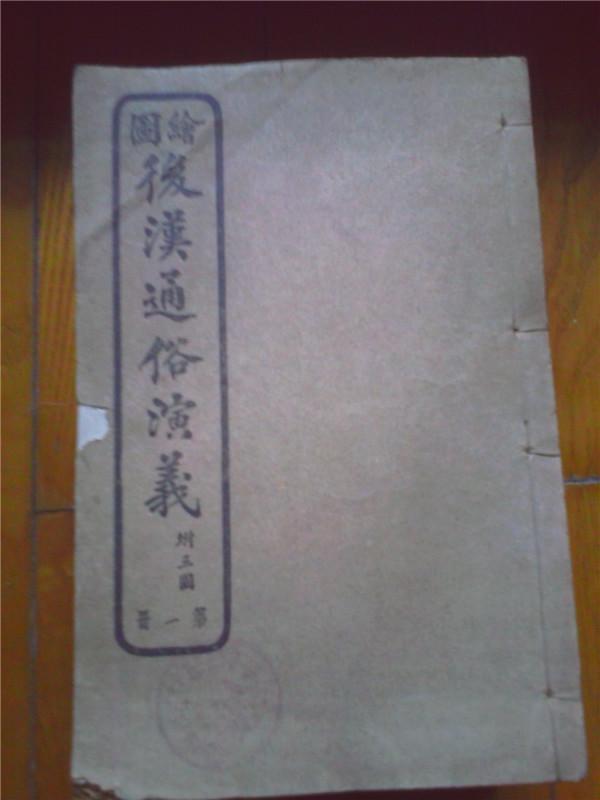 繪圖
後漢通俗演義
附三國
第一冊